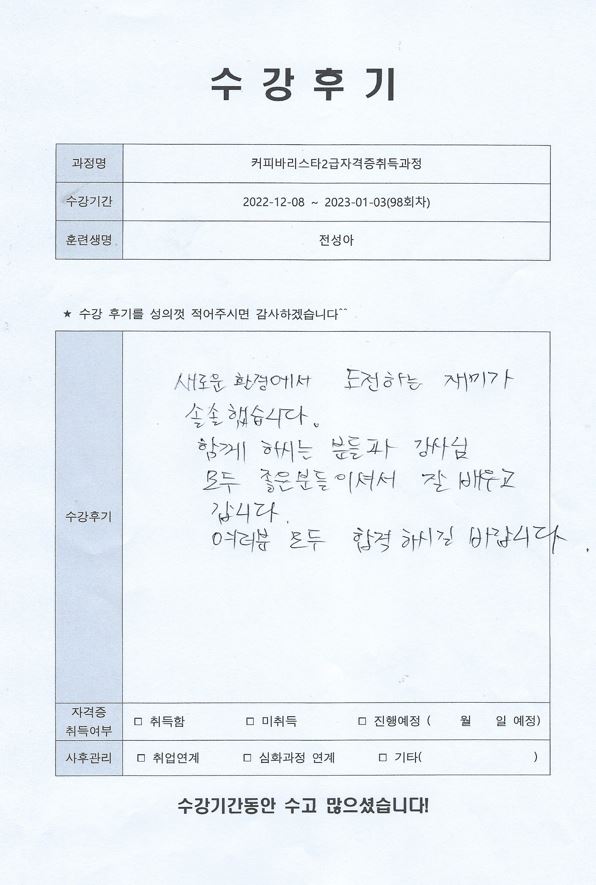 수 강 후 기
과정명 커피바리스타2급자격증취득과정
수강기간 2022-12-08 ~ 2023-01-03(98회차)
훈련생명 전성아
★ 수강 후기를 성의껏 적어주시면 감사하겠습니다^^
새로운 환경에서 도전하는 재미가
솔솔했습니다.
함께 하시는 분들과 강사님
모두 좋은분들이셔서 잘 배우고
갑니다.
여러분 모두 합격하시길 바랍니다.
수강후기
자격증
취득여부
□ 취득함 □ 미취득 □ 진행예정 ( 월 일 예정)
사후관리 □ 취업연계 □ 심화과정 연계 □ 기타( )
수강기간동안 수고 많으셨습니다!